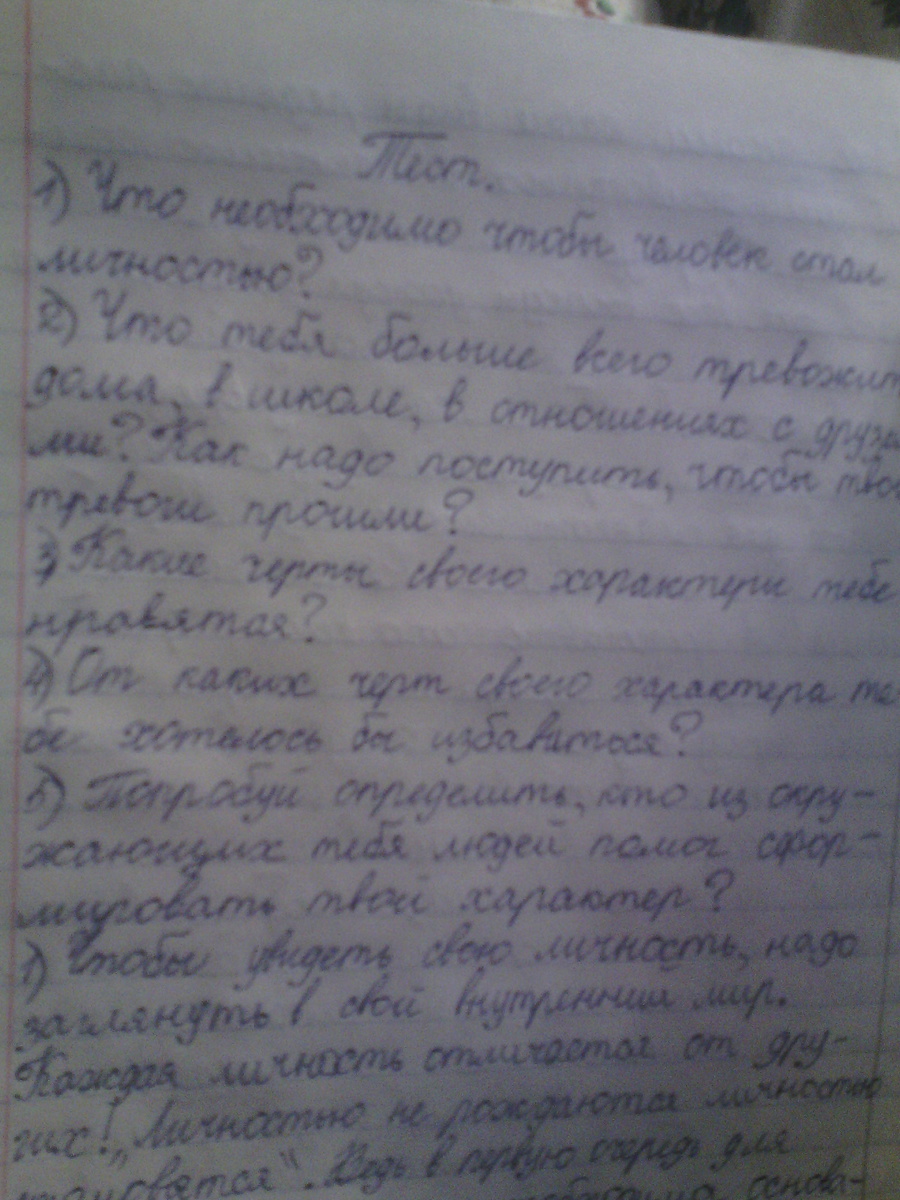 Тест.
1) Что необходимо чтобы человек стал
личностью?
2) Что тебя больше всего тревожит
дома, в школе, в отношениях с друзья
ми? Как надо поступить, чтобы тво
тревоги прошли?
3) Какие черты своего характера тебе
нравятся?
4) От каких черт своего характера те-
бе хотелось бы избавиться?
5) Попробуй определить, кто из окру-
жающих тебя людей помог сфор-
мировать твой характер?
1) Чтобы увидеть свою личность, надо
заглянуть в свой внутренний мир.
Каждая личность отличается от дру-
гих! „Личностью не рождаются личностью
становятся". Ведь в первую очередь для
основа-